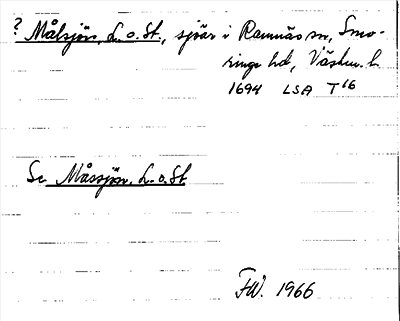 ? Målsjön, L. o. St., sjöar i Ramnäs sn, Sno-
ringe hd, Västm. l.
1694 LSA T16
Se Måssjön, L. o. St
FW. 1966